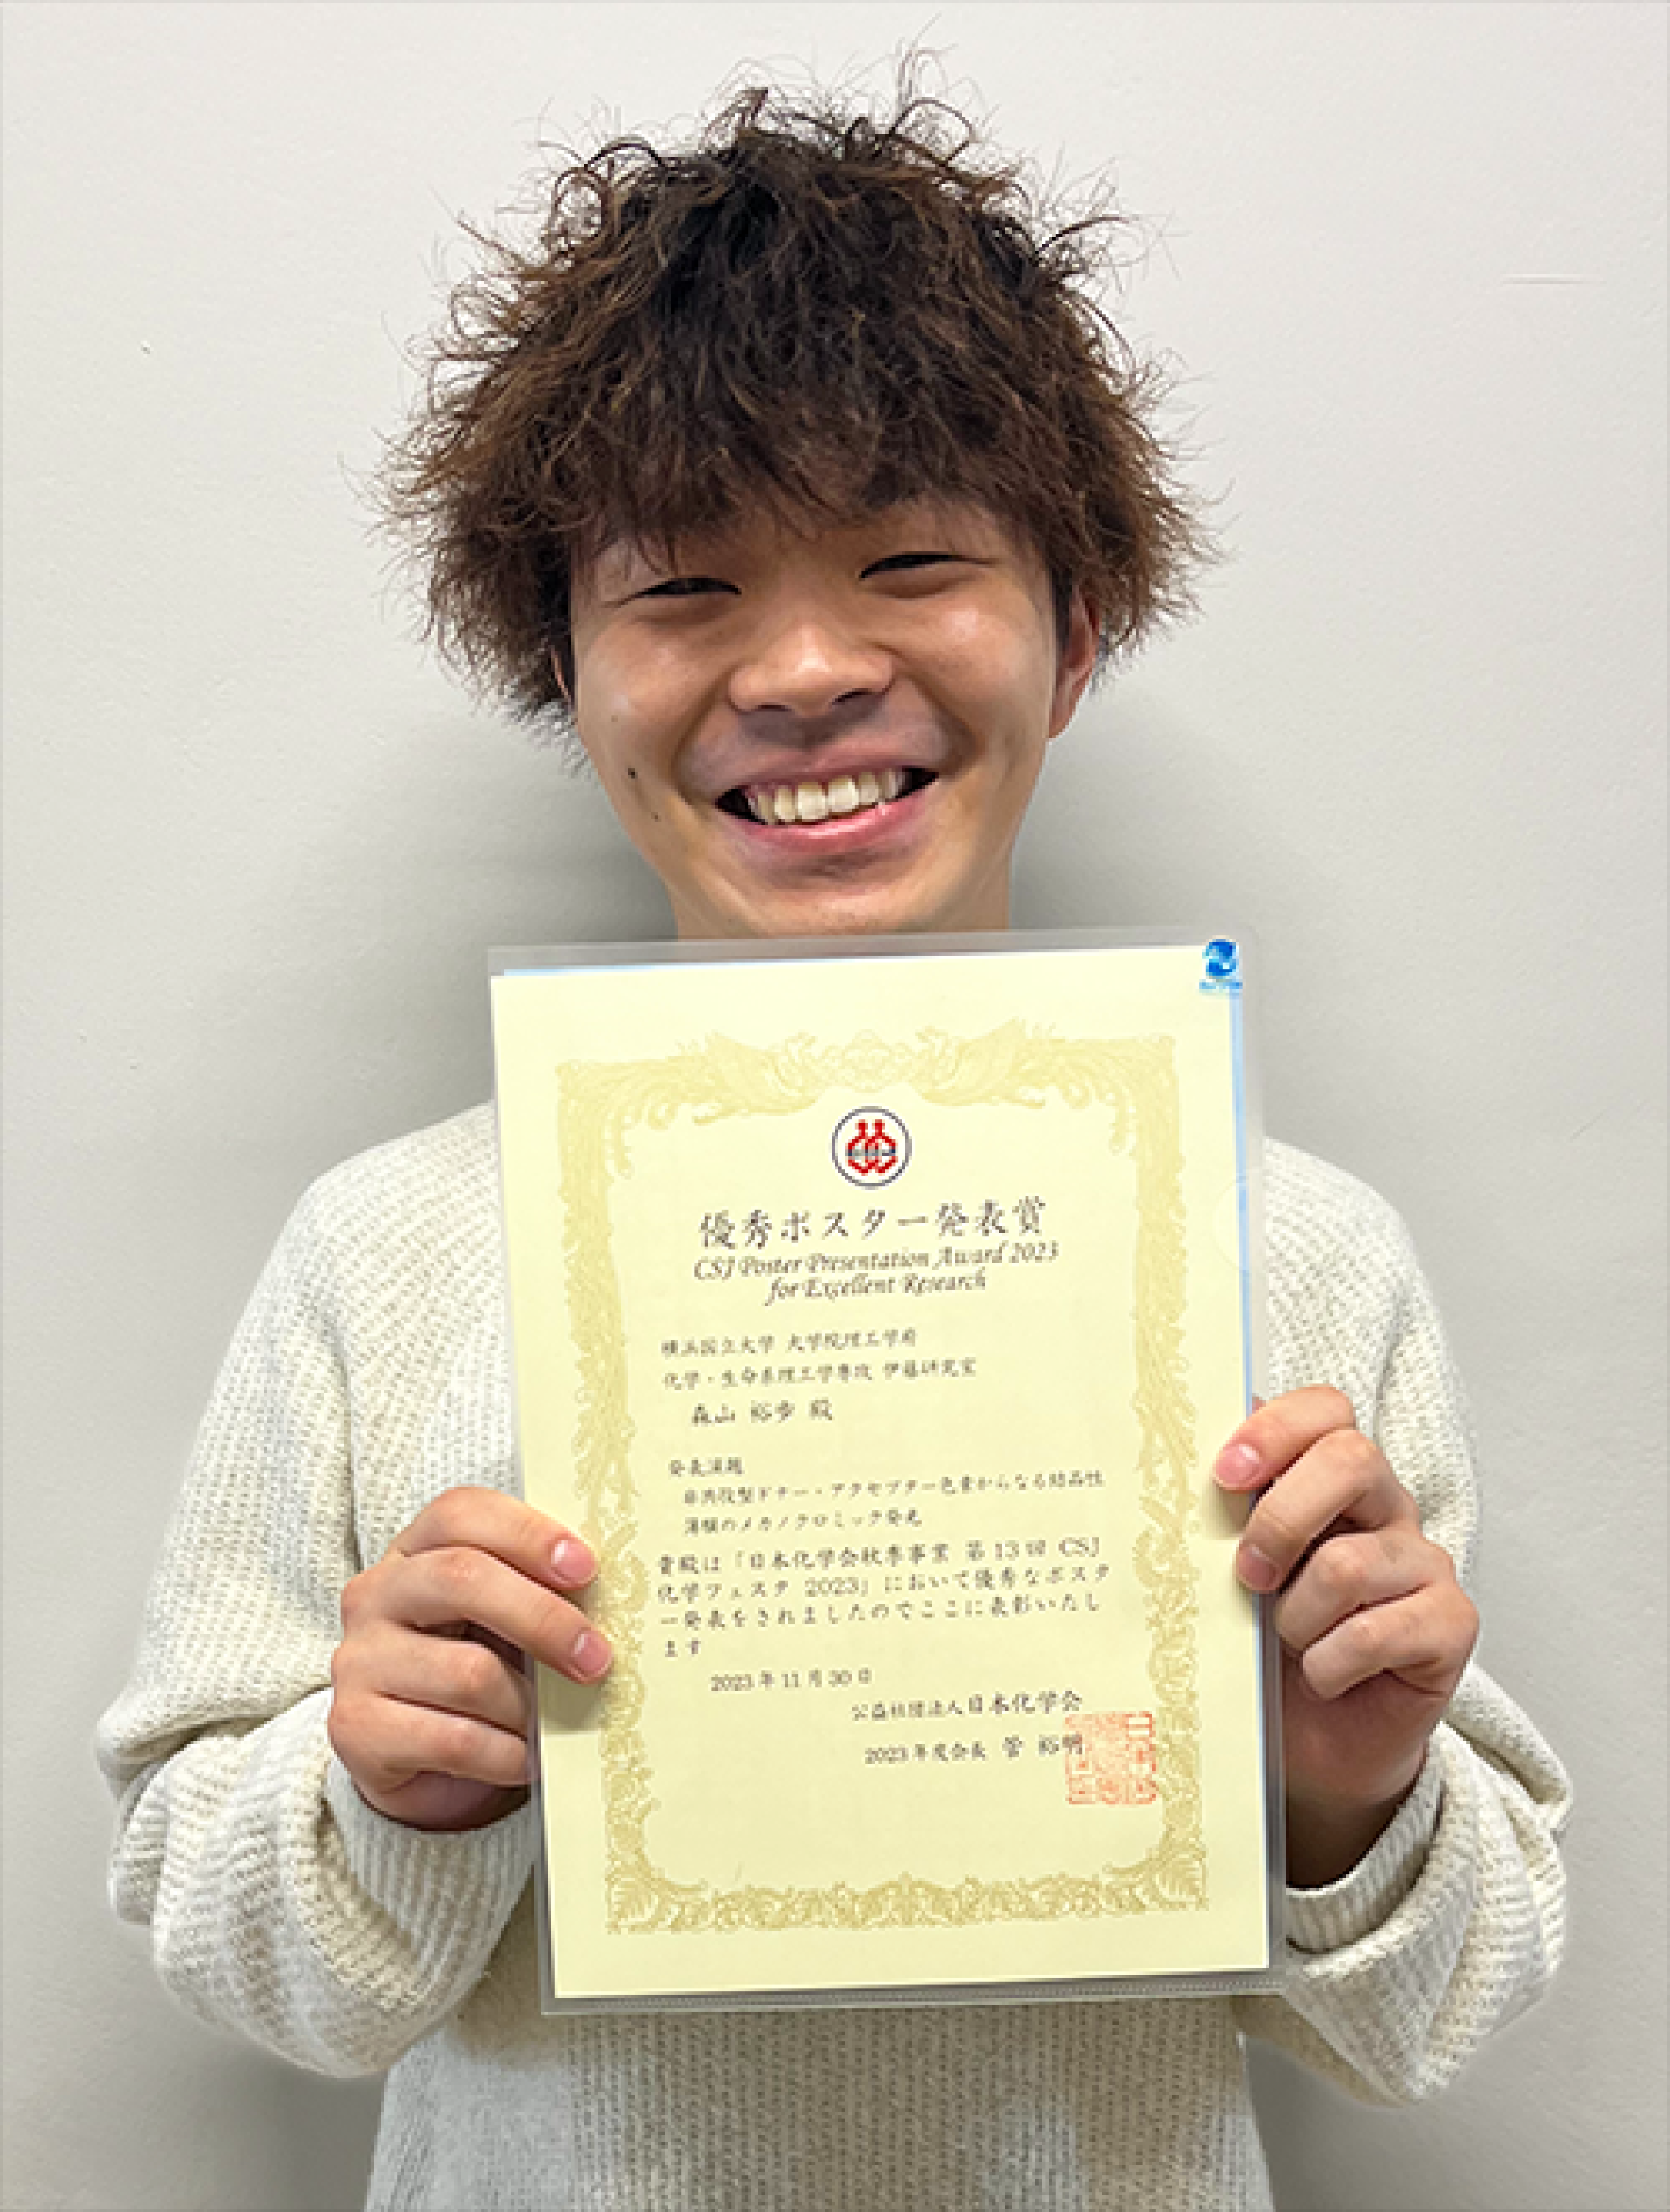 優秀ポスター発表賞
CSJ Poster Presentation Award 2023
for Excellent Research
横浜国立大学 大学院理工学府
化学・生命系理工学専攻 伊藤研究室
森山 裕歩 殿
発表演題
非共役型ドナー・アクセプター色素からなる結晶性
薄膜のメカノクロミック発光
貴殿は「日本化学会秋季事業 第13回 CSJ
化学フェスタ 2023」において優秀なポスタ
ー発表をされましたのでここに表彰いたし
ます
2023年11月30日
公益社団法人日本化学会
2023年度会長 菅 裕明